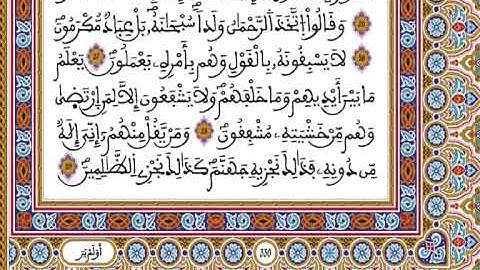 وَقَالُواْ اُ۪تَّخَذَ اَ۬لرَّحْمَٰنُ وَلَداٗۖ سُبْحَٰنَهُۥۖ بَلْ عِبَادٞ مُّكْرَمُونَ
لَا يَسْبِقُونَهُۥ بِالْقَوْلِ وَهُم بِأَمْرِهِۦ يَعْمَلُونَۖ يَعْلَمُ
مَا بَيْنَ أَيْدِيهِمْ وَمَا خَلْفَهُمْۖ وَلَا يَشْفَعُونَ إِلَّا لِمَنِ اِ۪رْتَض۪يٰ
وَهُم مِّنْ خَشْيَتِهِۦ مُشْفِقُونَۖ وَمَنْ يَّقُلْ مِنْهُمُۥٓ إِنِّيَ إِلَٰهٞ
مِّن دُونِهِۦ فَذَٰلِكَ نَجْزِيهِ جَهَنَّمَۖ كَذَٰلِكَ نَجْزِي اِ۬لظَّٰلِمِينَۖ
أَوَلَمْ يَرَ
330